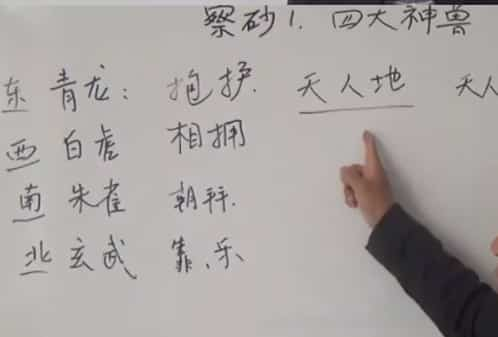 察砂1. 四大神兽
东 青龙: 抱护. 天人地 天人
西 白虎 相拥
南 朱雀 朝拜.
北 玄武 靠、乐